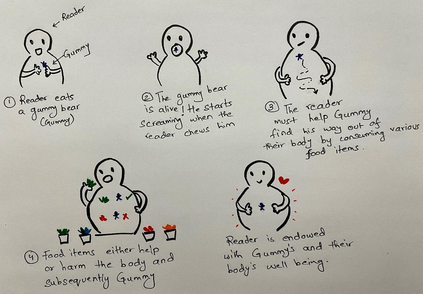 Reader
Gummy
① Reader eats
a gummy bear
(Gummy)
② The gummy bear
is alive! He starts
screaming when the
reader chews him
③ The reader
must help Gummy
find his way out of
their body by consuming various
food items.
④ Food items either help
or harm the body and
subsequently Gummy
Reader is endowed
with Gummy's and their
body's well being.